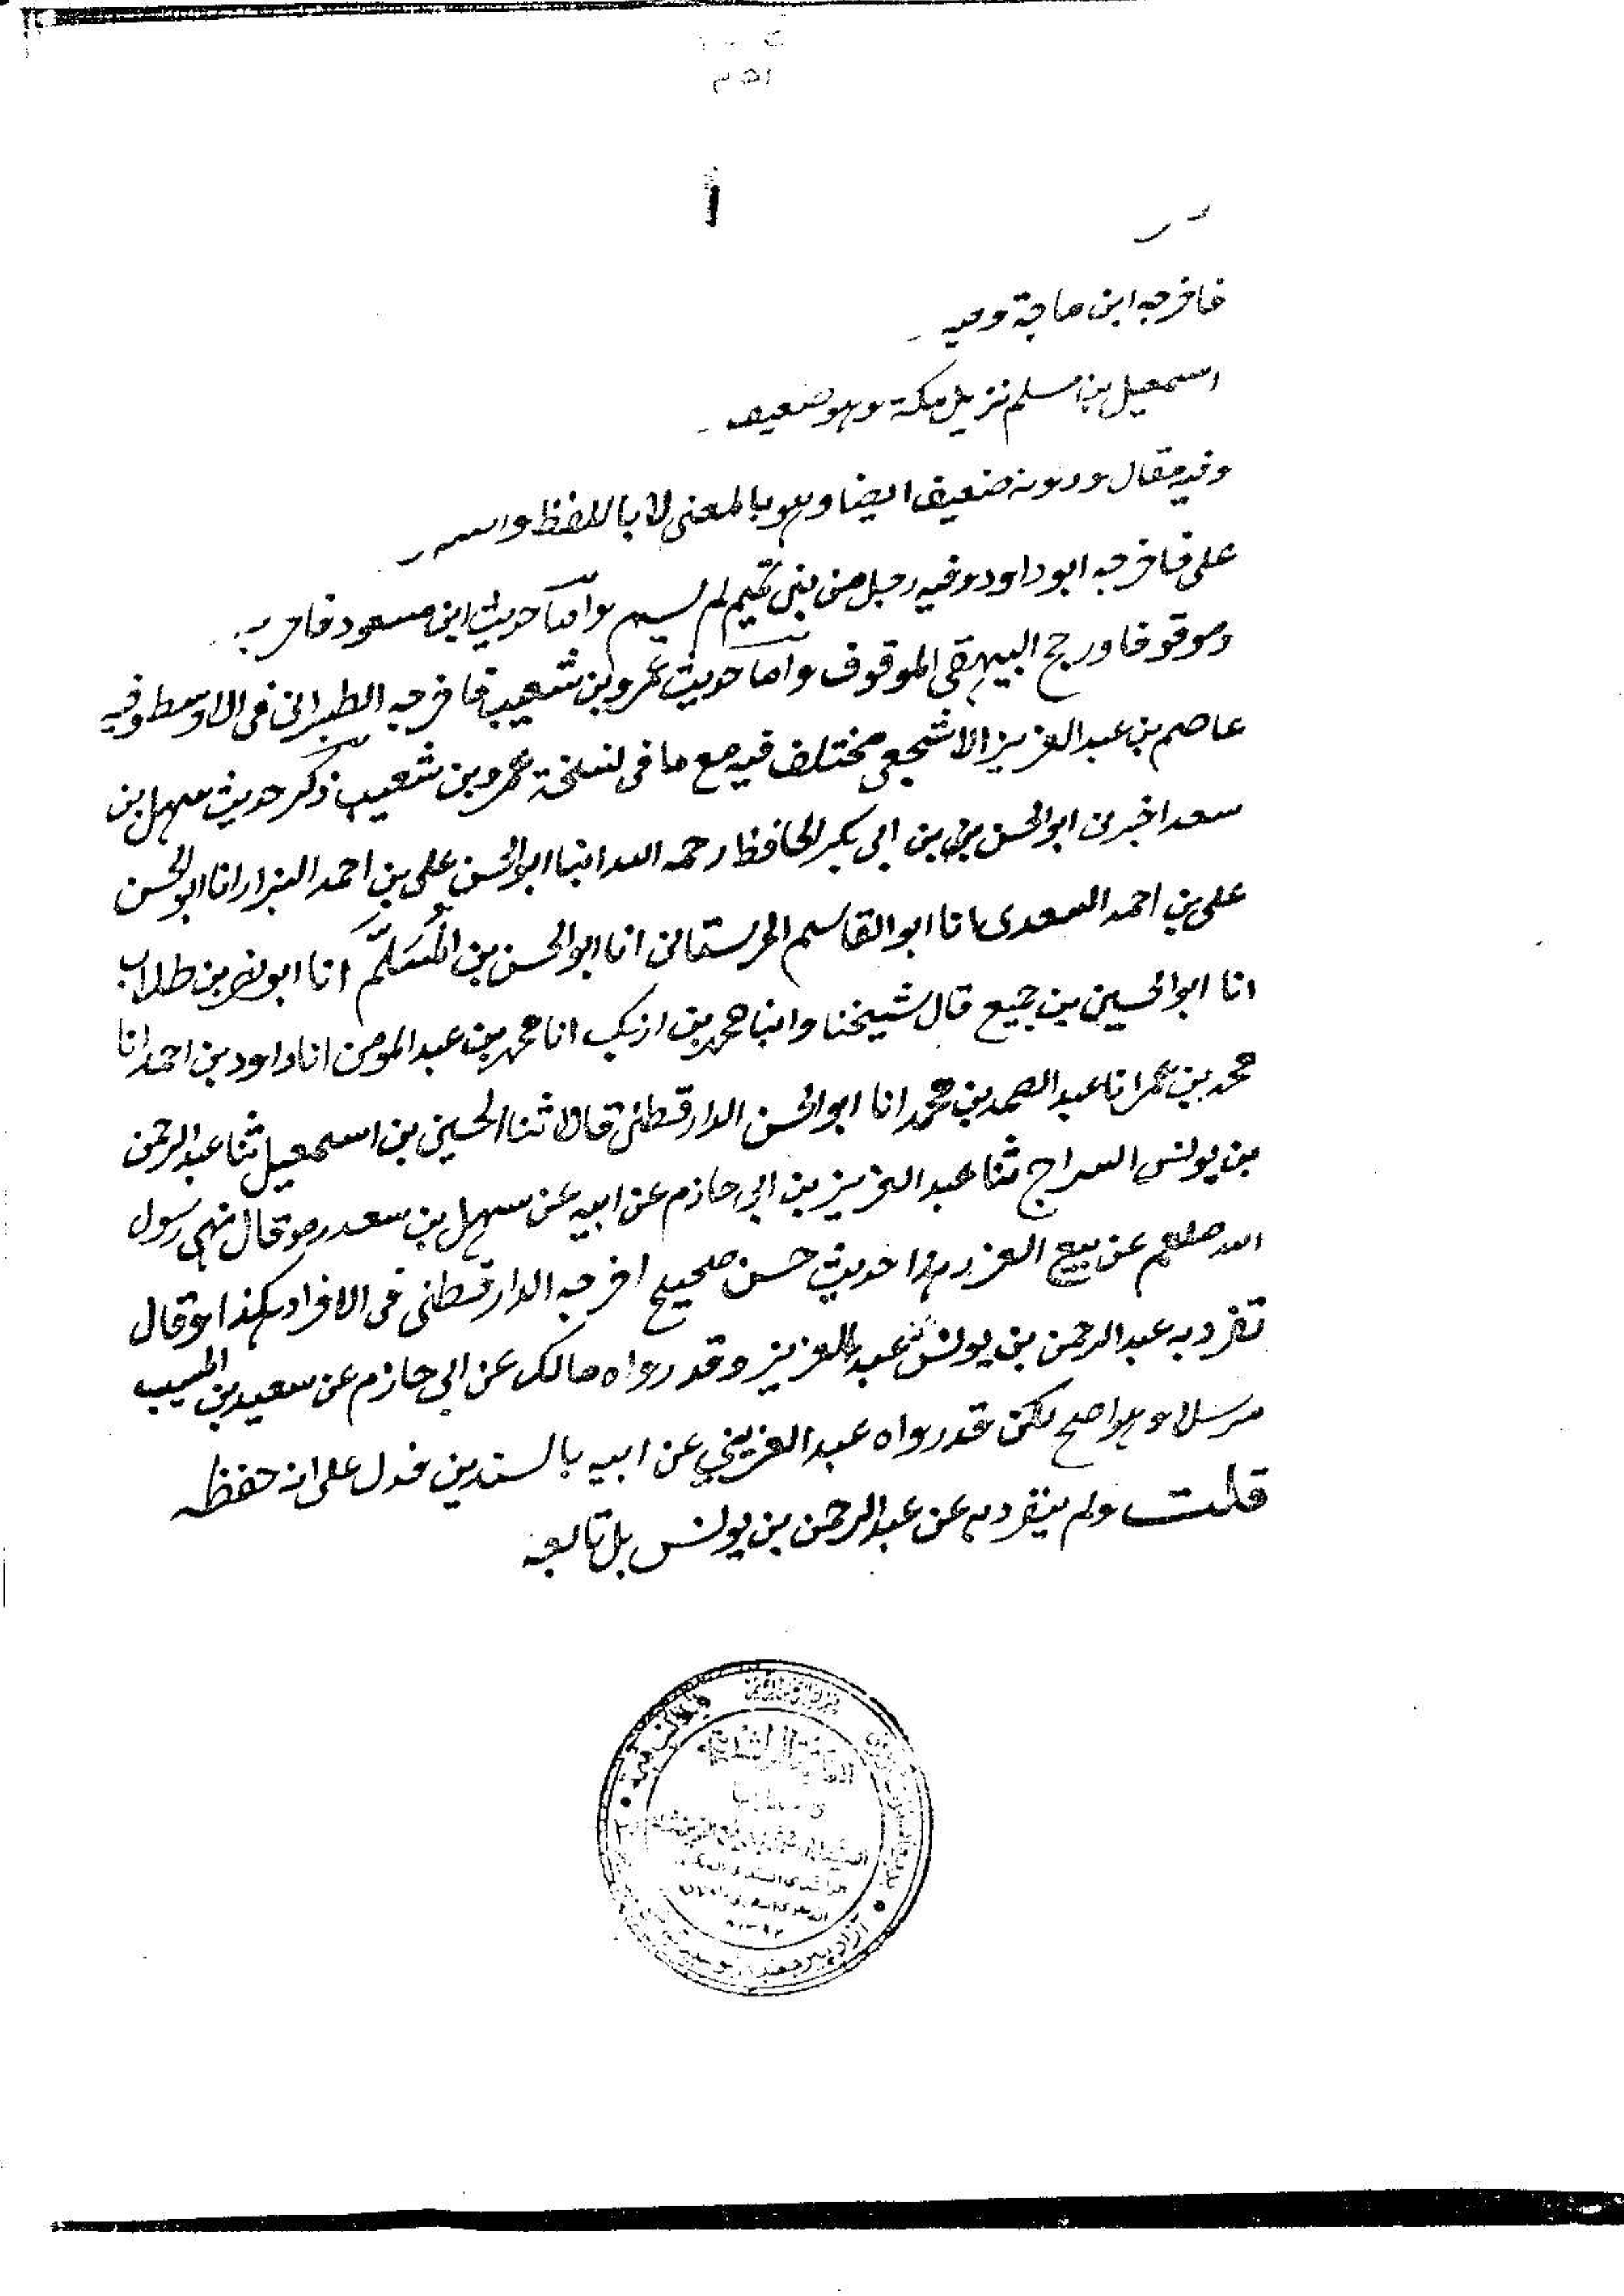 فاخرجه ابن ماجة وفيه
اسمعيل بن مسلم نزيل مكة وهو ضعيف
وفيه مقال ودونه ضعيف ايضا وهو بالمعنى لا باللفظ
على فاخرجه ابوداود وفيه رجل من بنى تميم لم يسم واما حديث ابن مسعود
وموقوفا ورجح البيهقى الموقوف واما حديث عمرو بن شعيب فاخرجه الطبرانى فى الاوسط وفيه
عاصم بن عبد العزيز الاشجعى مختلف فيه مع ما فى نسخة عمرو بن شعيب ذكر حديث سهل بن
سعد اخبرنى ابوالحسن بن ابى بكر الحافظ رحمه الله انبا ابوالحسن على بن احمد البزار انا ابوالحسن
على بن احمد السعدى انا ابوالقاسم الحرستانى انا ابوالحسن بن المُسَلَّم انا ابونصر بن طلاب
انا ابوالحسين بن جميع قال شيخنا وانبا محمد بن ازبك انا محمد بن عبد المومن انا داود بن احمد انا
محمد بن عمر انا عبد الصمد بن محمد انا ابوالحسن الدارقطنى قالا ثنا الحسين بن اسمعيل ثنا عبد الرحمن
بن يونس السراج ثنا عبد العزيز بن ابى حازم عن ابيه عن سهل بن سعد رض قال نهى رسول
الله صلعم عن بيع الغرر هذا حديث حسن صحيح اخرجه الدارقطنى فى الافراد هكذا وقال
تفرد به عبد الرحمن بن يونس عن عبد العزيز وقد رواه مالك عن ابى حازم عن سعيد بن المسيب
مرسلا وهو اصح لكن قد رواه عبد العزيز عن ابيه بالسندين فدل على انه حفظه
قلت ولم ينفرد به عن عبد الرحمن بن يونس بل تابعه